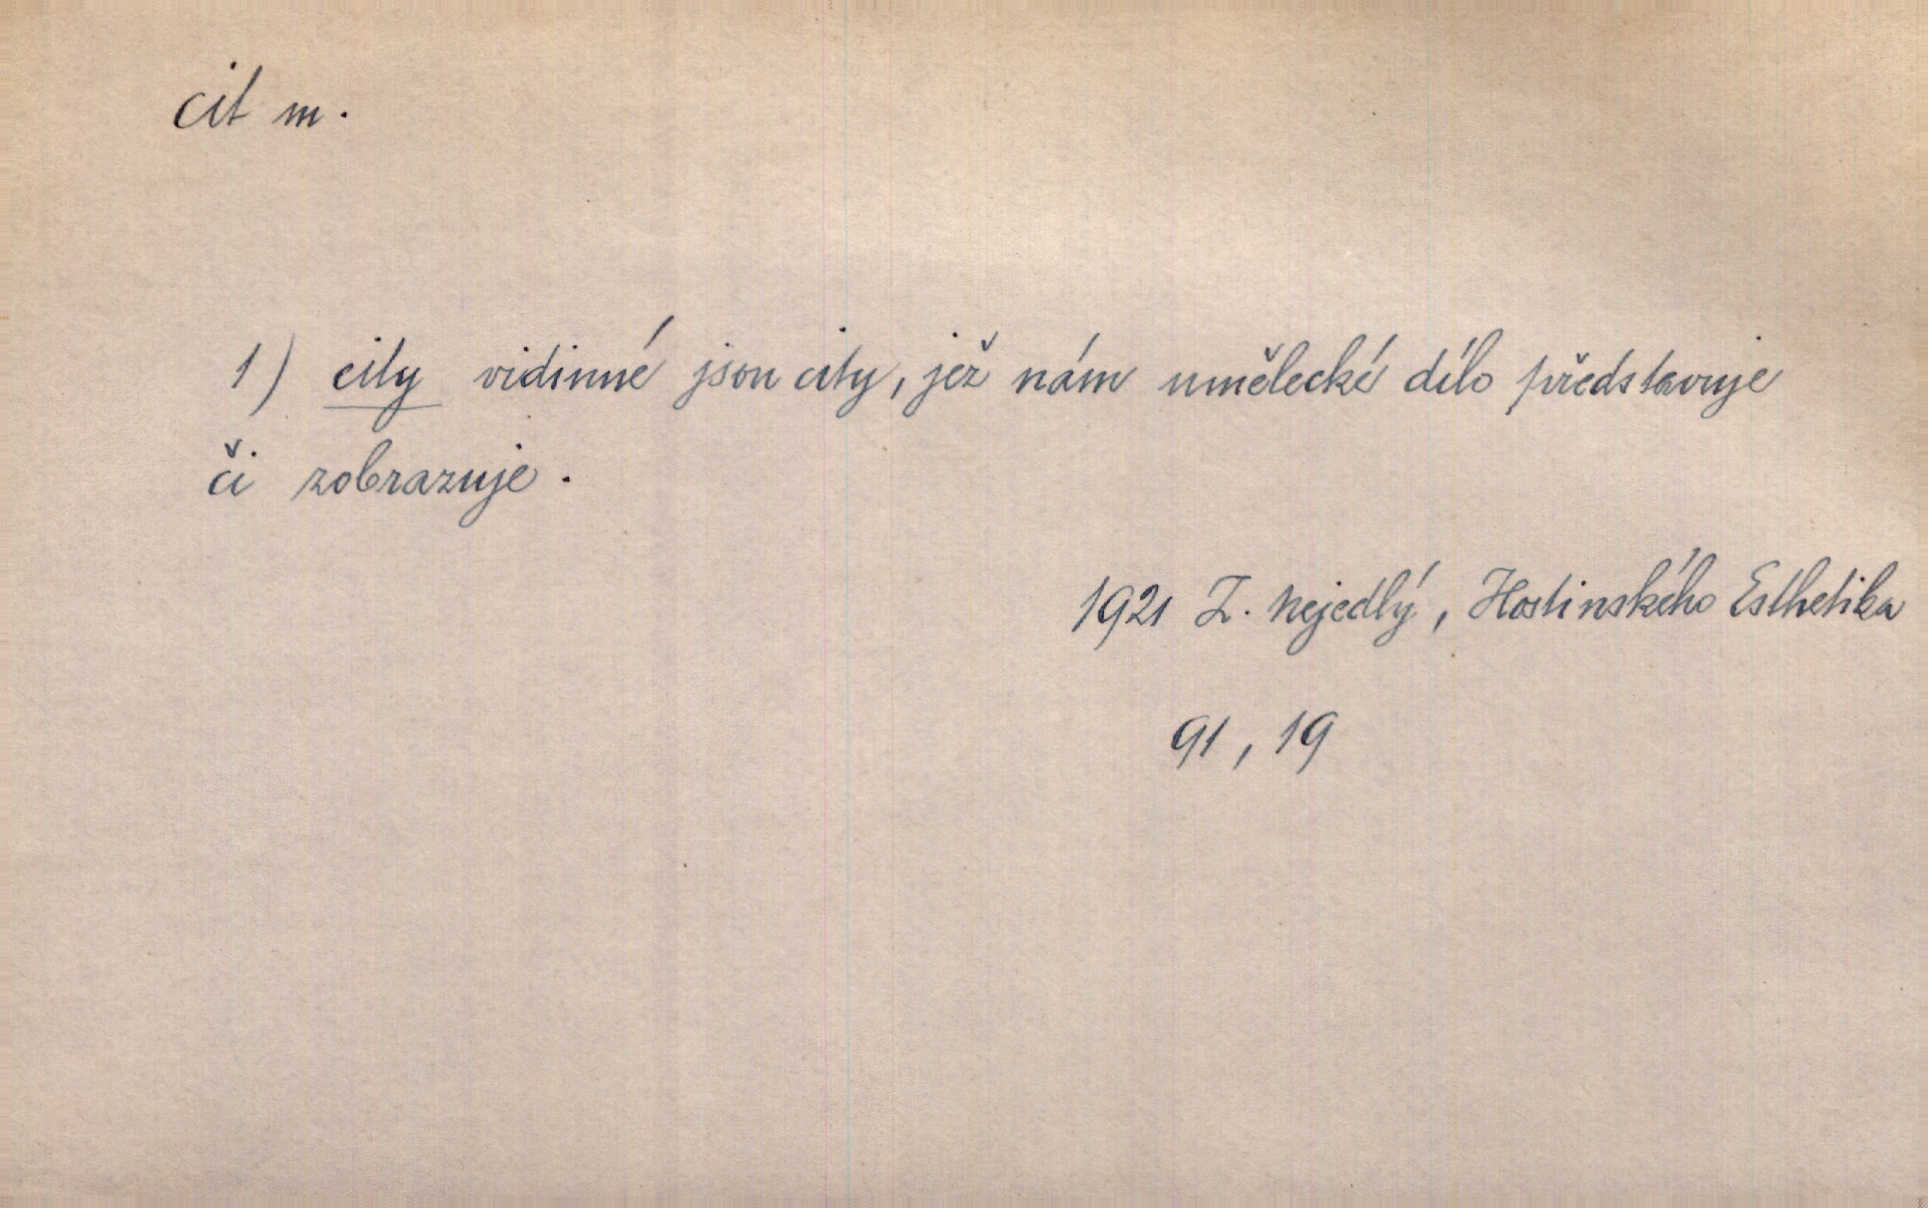 cit m.
1) city vidinné jsou city, jež nám umělecké dílo představuje
či zobrazuje.
1921 Z. Nejedlý, Hostinského Esthetika
91, 19